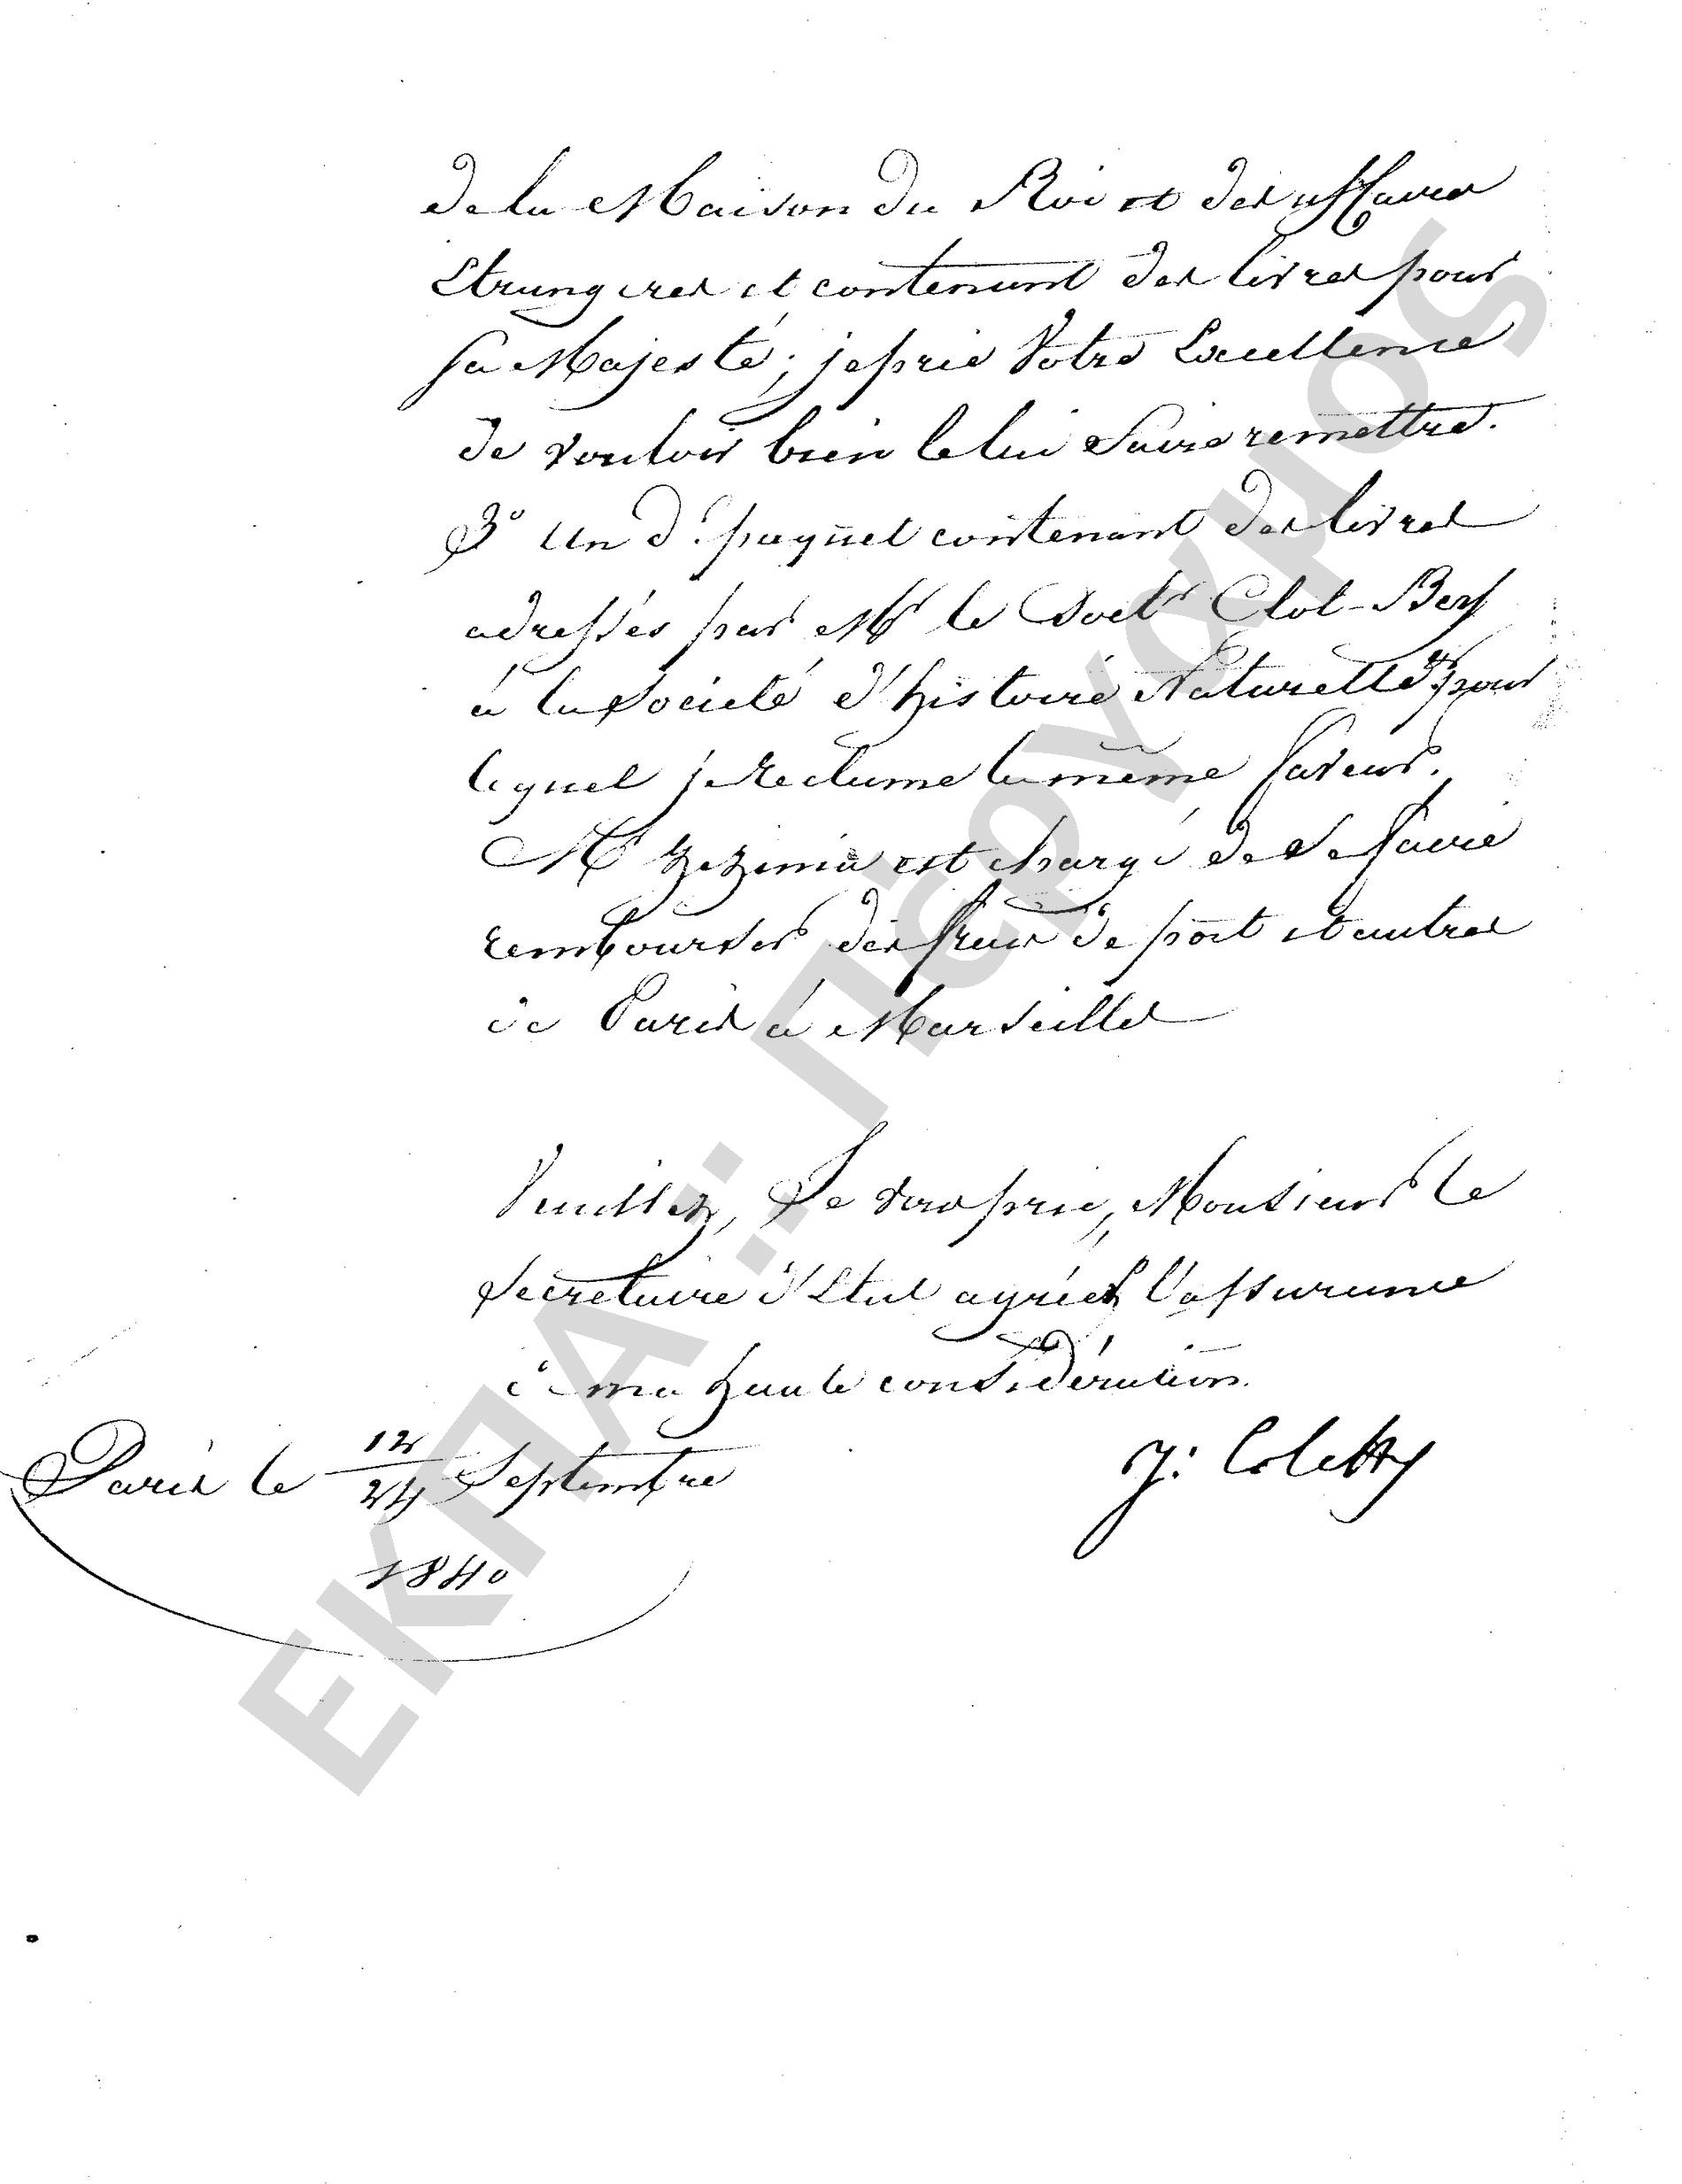 de la Maison du Roi et des affaires
Etrangeres et contenant des livres pour
Sa Majesté; je prie Votre Excellence
de vouloir bien le lui faire remettre.
3º Un dº paquet contenant des livres
adressés par Mr le Doctr Clot-Bey
à la Société d'histoire Naturelle & pour
lequel je réclame la même faveur.
Mr Zizinia est chargé de se faire
rembourser des frais de port et autres
de Paris à Marseilles
Veuillez, Je vous prie, Monsieur le
Secretaire d'Etat agréer l'assurance
de ma haute considération.
J: Coletty
Paris le 12/24 Septembre
1840
ΕΚΠΑ:: Περγαμος